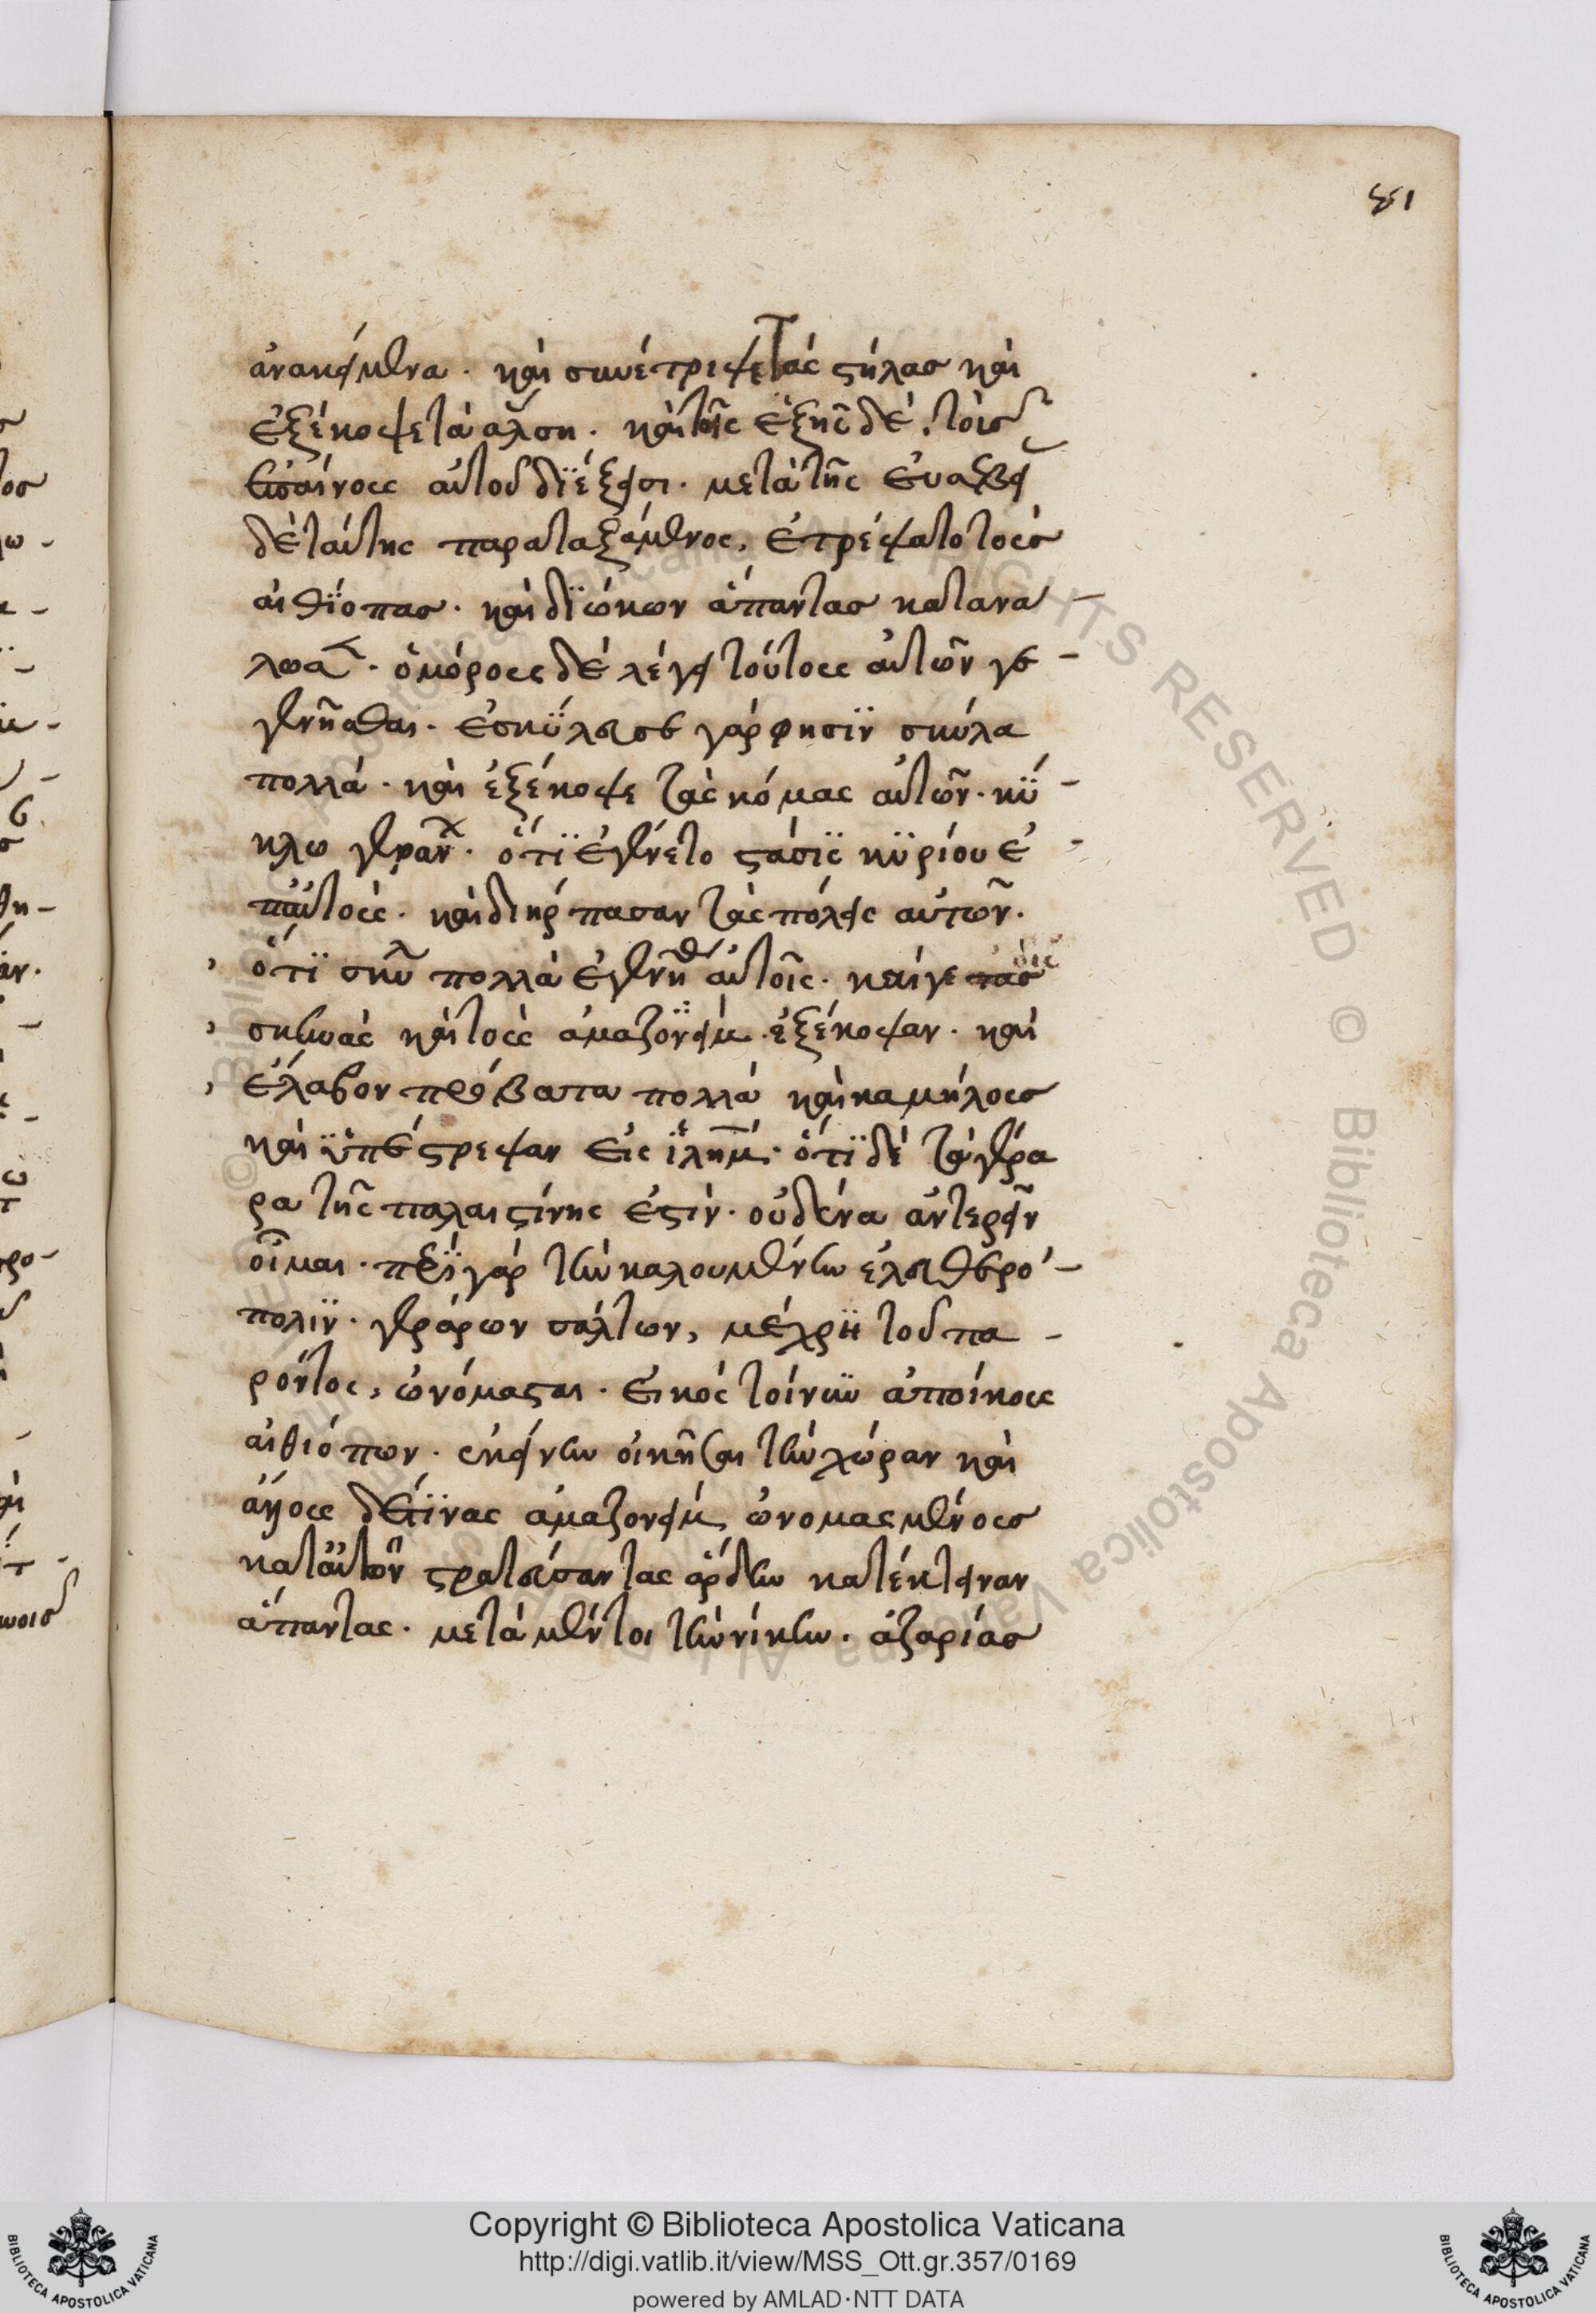 81
ἀνακείμενα · καὶ συνέτριψε τὰς στήλας καὶ
ἐξέκοψε τὰ ἄλση · καὶ τοῖς ἑξῆς δὲ τοῖς
ἐπαίνους αὐτοῦ διέξεισι · μετὰ τῆς εὐσεβεί
δὲ ταύτης παραταξάμενος, ἐτρέψατο τοὺς
αἰθίοπας · καὶ διώκων ἅπαντας κατανα -
λωσ · ὁμόρους δὲ λέγει τούτους αὐτῶν γε -
γενῆσθαι · ἐσκύλευσε γάρ φησϊν σκύλα
πολλά · καὶ ἐξέκοψε τὰς κόμας αὐτῶν · κϋ -
κλω γεραρ · ὅτϊ ἐγένετο στάσϊς κϋρίου ἐ -
π' αὐτούς · καὶ διήρπασαν τὰς πόλεις αὐτῶν ·
ὅτϊ σκῦλ πολλὰ ἐγενήθ αὐτοῖς · καίγε τὰς
σκηνὰς καὶ τοὺς ἀμαζονεὶμ · ἐξέκοψαν · καὶ
ἔλαβον πρόβατα πολλὰ καὶ καμήλους
καὶ ϋπέστρεψαν εἰς ϊλημ · ὅτϊ δὲ τὰ γέρα
ρα τῆς παλαιστίνης ἐστίν · οὐδένα ἀντερεῖν
οἶμαι · περϊ γὰρ τὴν καλουμένην ἐλευθερό -
πολϊν · γεράρων σάλτων, μέχρϊ τοῦ πα -
ρόντος, ὠνόμασται · εἰκὸς τοίνυν ἀποίκους
αἰθιόπων · ἐκείνην οἰκῆσαι τὴν χώραν καὶ
ἄλλους δέ τϊνας ἀμαζονεὶμ ὠνομασμένους
κατ' αὐτῶν στρατεύσαντας ἄρδην κατέκτειναν
ἅπαντας · μετὰ μέντοι τὴν νίκην · ἀζαρίας
Copyright © Biblioteca Apostolica Vaticana
http://digi.vatlib.it/view/MSS_Ott.gr.357/0169
powered by AMLAD·NTT DATA